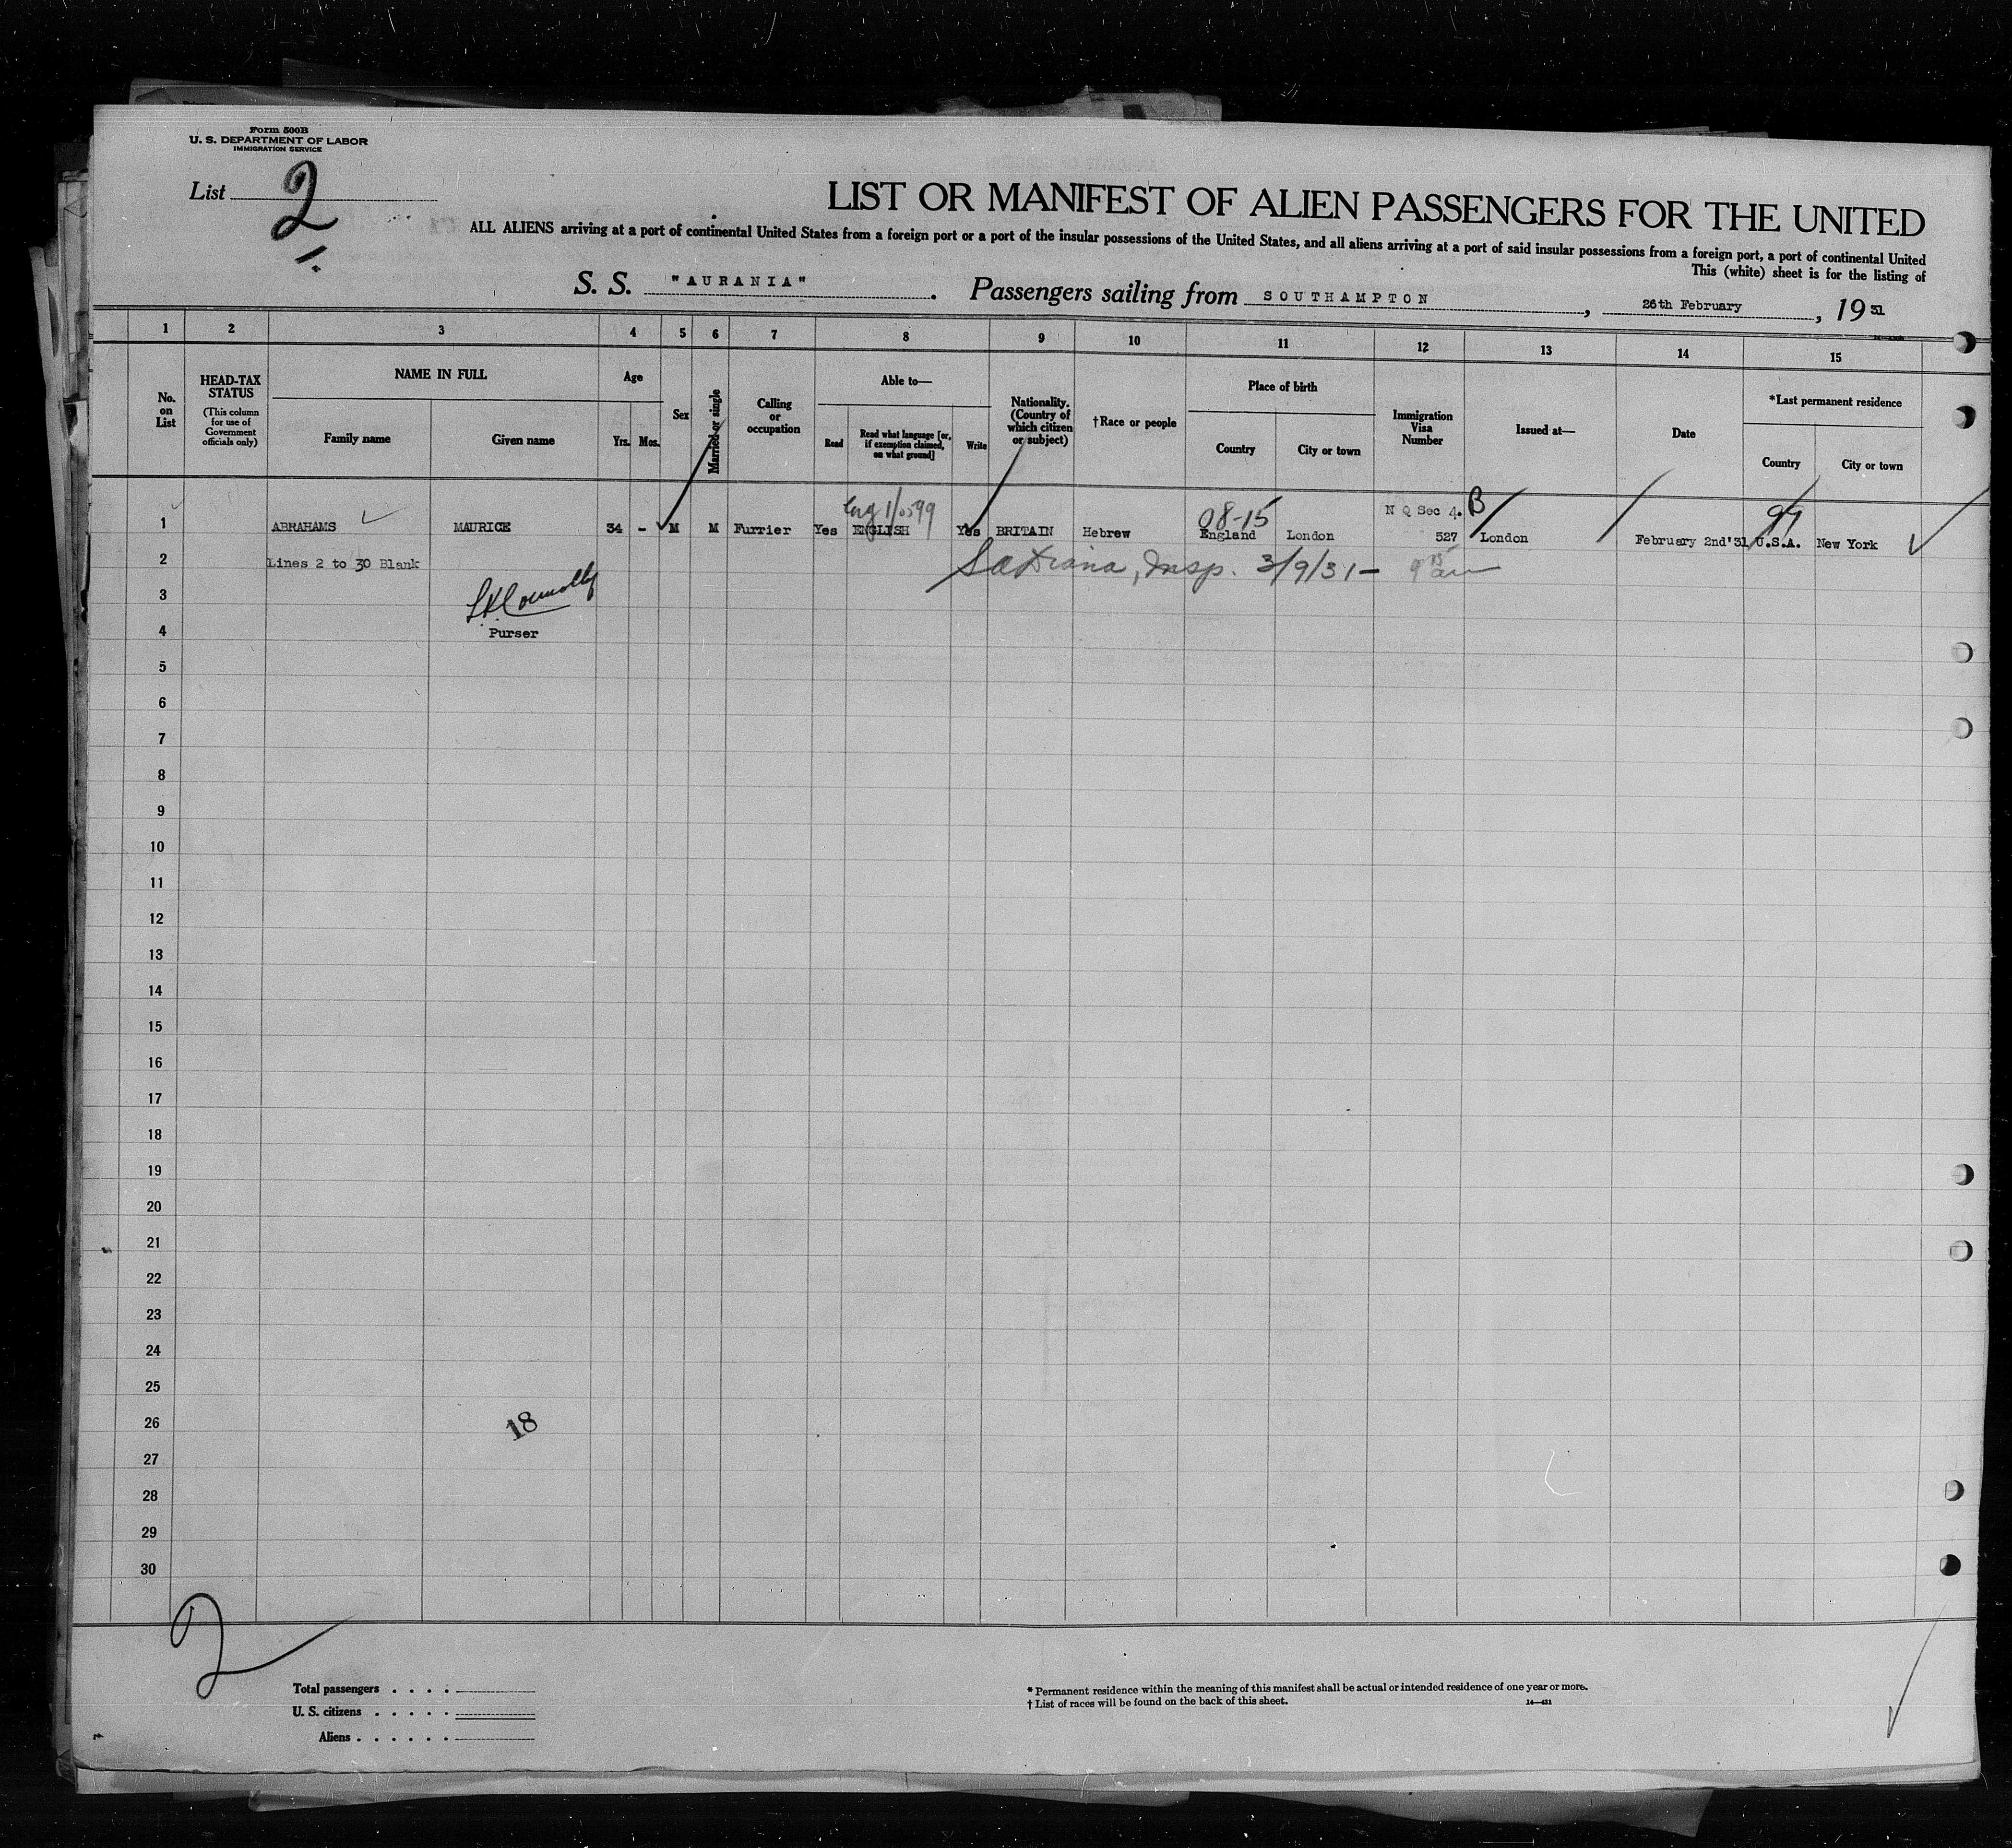 Form 500B
U. S. DEPARTMENT OF LABOR
IMMIGRATION SERVICE
List 2
LIST OR MANIFEST OF ALIEN PASSENGERS FOR THE UNITED
ALL ALIENS arriving at a port of continental United States from a foreign port or a port of the insular possessions of the United States, and all aliens arriving at a port of said insular possessions from a foreign port, a port of continental United
This (white) sheet is for the listing of
S. S. "AURANIA". Passengers sailing from SOUTHAMPTON, 26th February, 1931
1 2 3 4 5 6 7 8 9 10 11 12 13 14 15
No. on List
HEAD-TAX STATUS
(This column for use of Government officials only)
NAME IN FULL
Family name Given name
Age
Yrs. Mos.
Sex
Married or single
Calling or occupation
Able to—
Read
Read what language [or, if exemption claimed, on what ground]
Write
Nationality. (Country of which citizen or subject)
†Race or people
Place of birth
Country City or town
Immigration Visa Number
Issued at—
Date
*Last permanent residence
Country City or town
08-15 N Q Sec 4. B 99
1 ABRAHAMS MAURICE 34 - M M Furrier Yes ENGLISH Yes BRITAIN Hebrew England London 527 London February 2nd'31 U.S.A. New York
2 Lines 2 to 30 Blank
Insp. 3/9/31-
3
4 Purser
5
6
7
8
9
10
11
12
13
14
15
16
17
18
19
20
21
22
23
24
25
26
18
27
28
29
30
2
Total passengers . . . .
U. S. citizens . . . . .
Aliens . . . . . .
* Permanent residence within the meaning of this manifest shall be actual or intended residence of one year or more.
† List of races will be found on the back of this sheet.